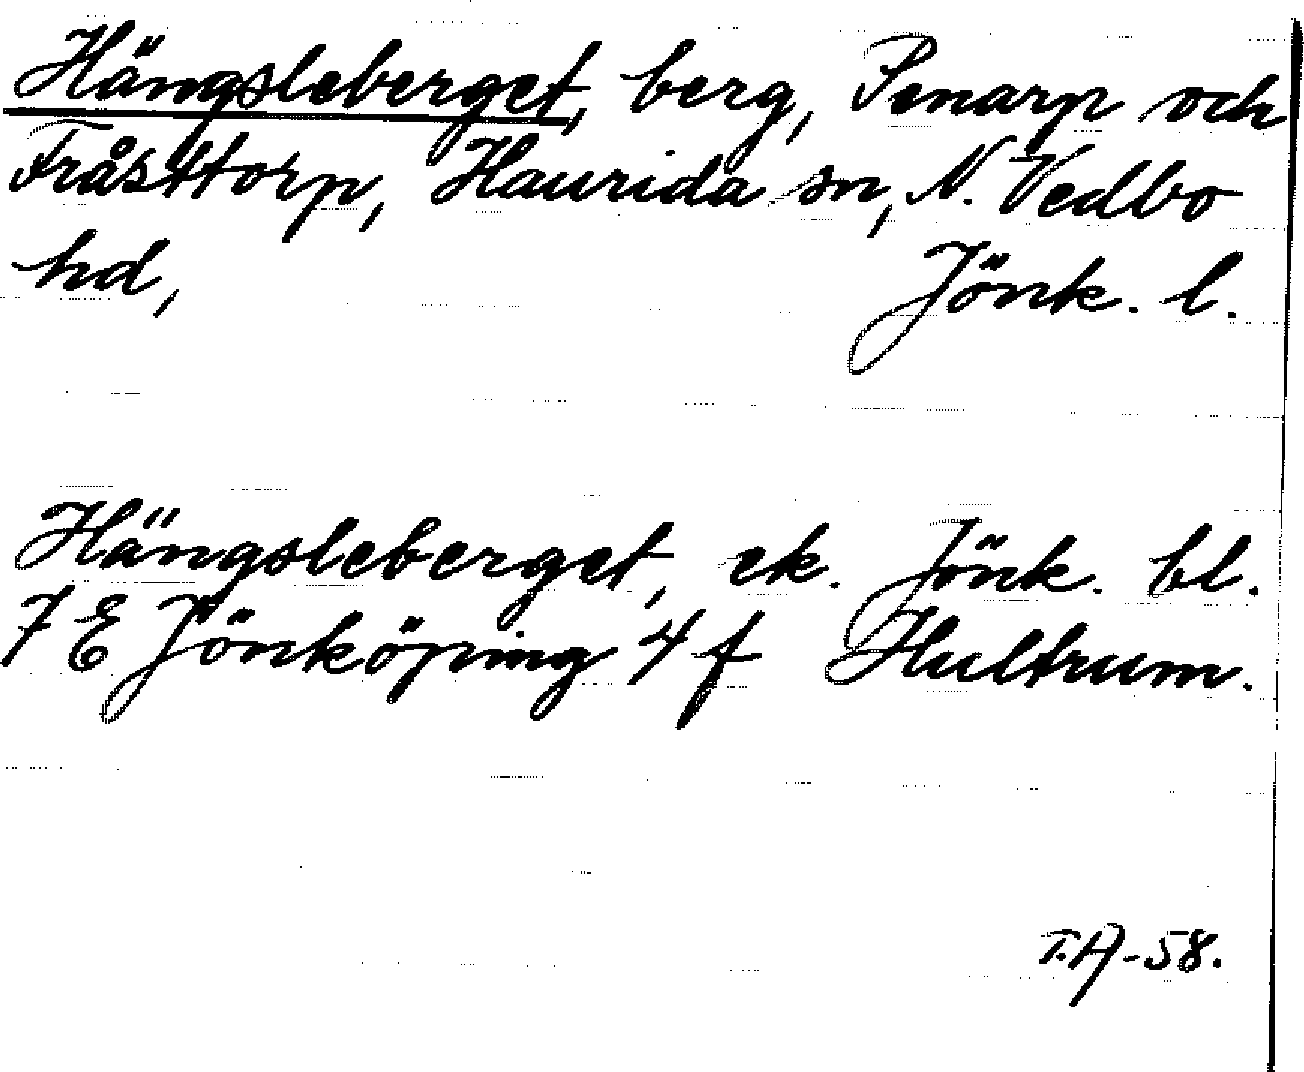 Hängsleberget, berg, Penarp och
Fråsttorp, Haurida sn, N. Vedbo
hd,
Jönk. l.
Hängsleberget, ek. Jönk. bl.
7 E Jönköping 4 f Hultrum.
T.A-58.